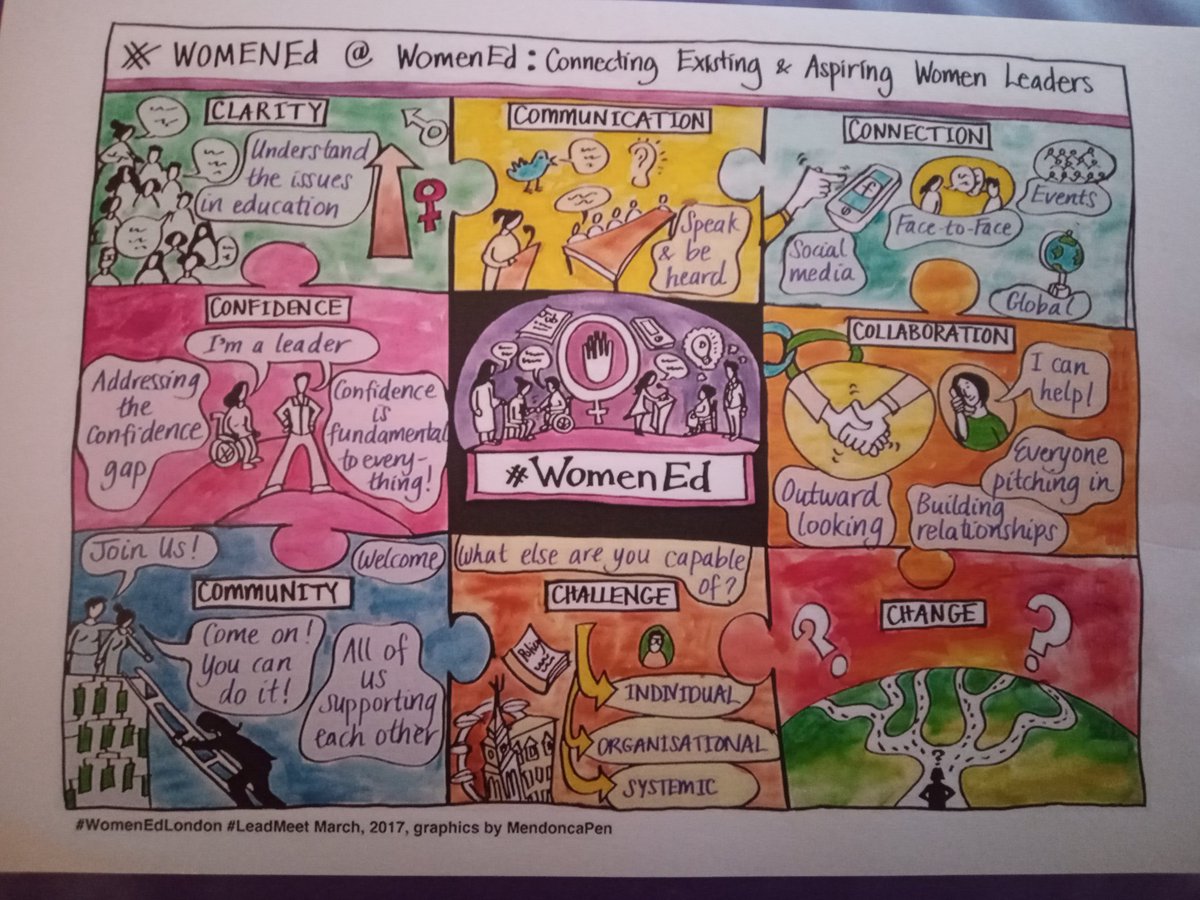 WOMENEd @ WomenEd: Connecting Existing & Aspiring Women Leaders
CLARITY
Understand
the issues
in education
COMMUNICATION
Speak
& be
heard
CONNECTION
Social
media
Face-to-Face
Events
Global
CONFIDENCE
I'm a leader
Addressing
the
Confidence
gap
Confidence
is
fundamental
to every-
thing!
#WomenEd
COLLABORATION
I can
help!
Outward
looking
Building
relationships
Everyone
pitching in
Join Us!
Welcome
COMMUNITY
Come on!
You can
do it!
All of
us
supporting
each other
What else are you capable
of?
CHALLENGE
Policy
INDIVIDUAL
ORGANISATIONAL
SYSTEMIC
CHANGE
? ?
#WomenEdLondon #LeadMeet March, 2017, graphics by MendoncaPen